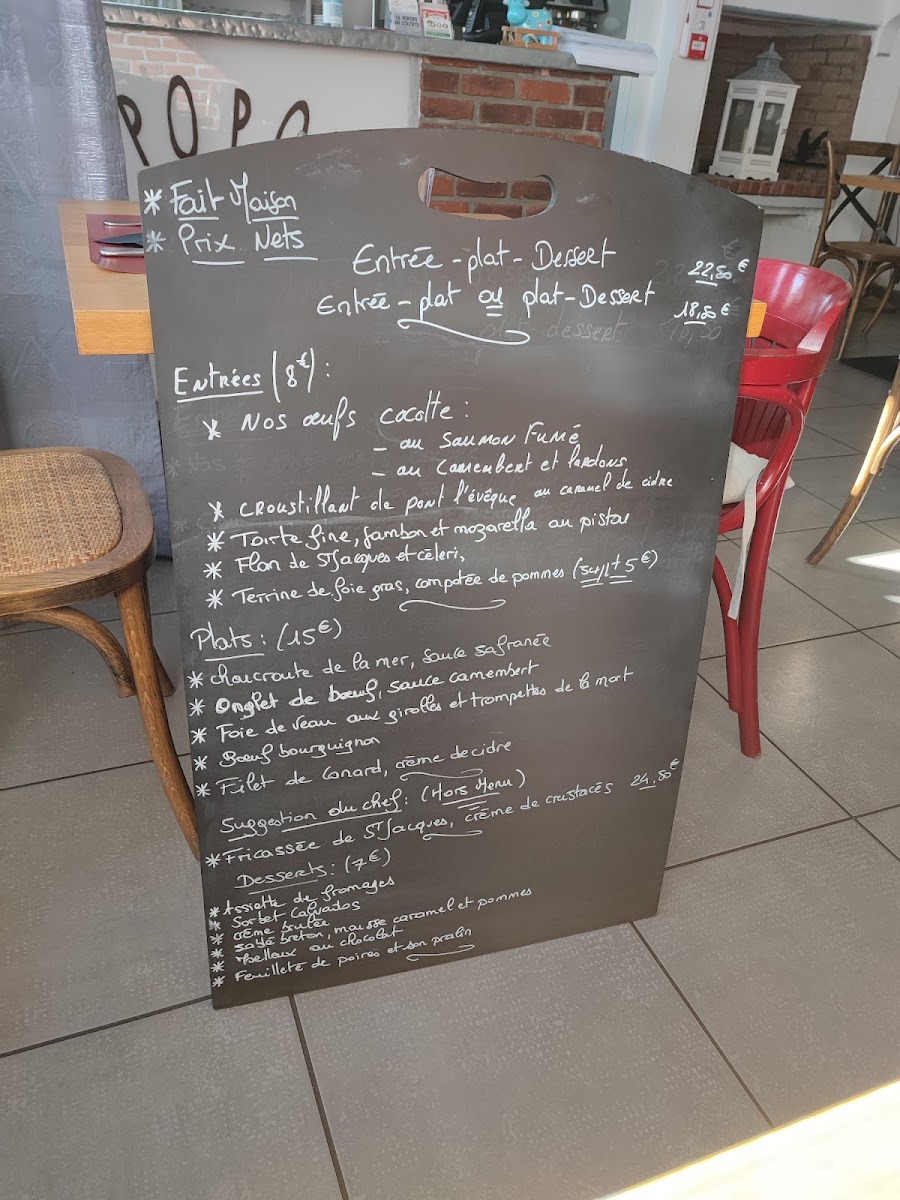 POPO
* Fait Maison
* Prix Nets
Entrée - plat - Dessert 22,80 €
Entrée - plat ou plat - Dessert 18,80 €
Entrées (8€) :
* Nos œufs cocotte :
- au saumon Fumé
- au camembert et lardons
* croustillant de pont l'évêque au caramel de cidre
* Tarte fine, jambon et mozarella au pistou
* Flan de St Jacques et céleri,
* Terrine de foie gras, compotée de pommes (suppl + 5€)
Plats : (15€)
* choucroute de la mer, sauce safranée
* Onglet de bœuf, sauce camembert
* Foie de veau aux girolles et trompettes de la mort
* Bœuf bourguignon
* Filet de Canard, crème de cidre
Suggestion du chef : (Hors Menu)
* Fricassée de St Jacques, crème de crustacés 24,80€
Desserts : (7€)
* Assiette de fromages
* Sorbet Calvados
* crème brulée
* sablé breton, mousse caramel et pommes
* Moelleux au chocolat
* Feuilleté de poires et son pralin